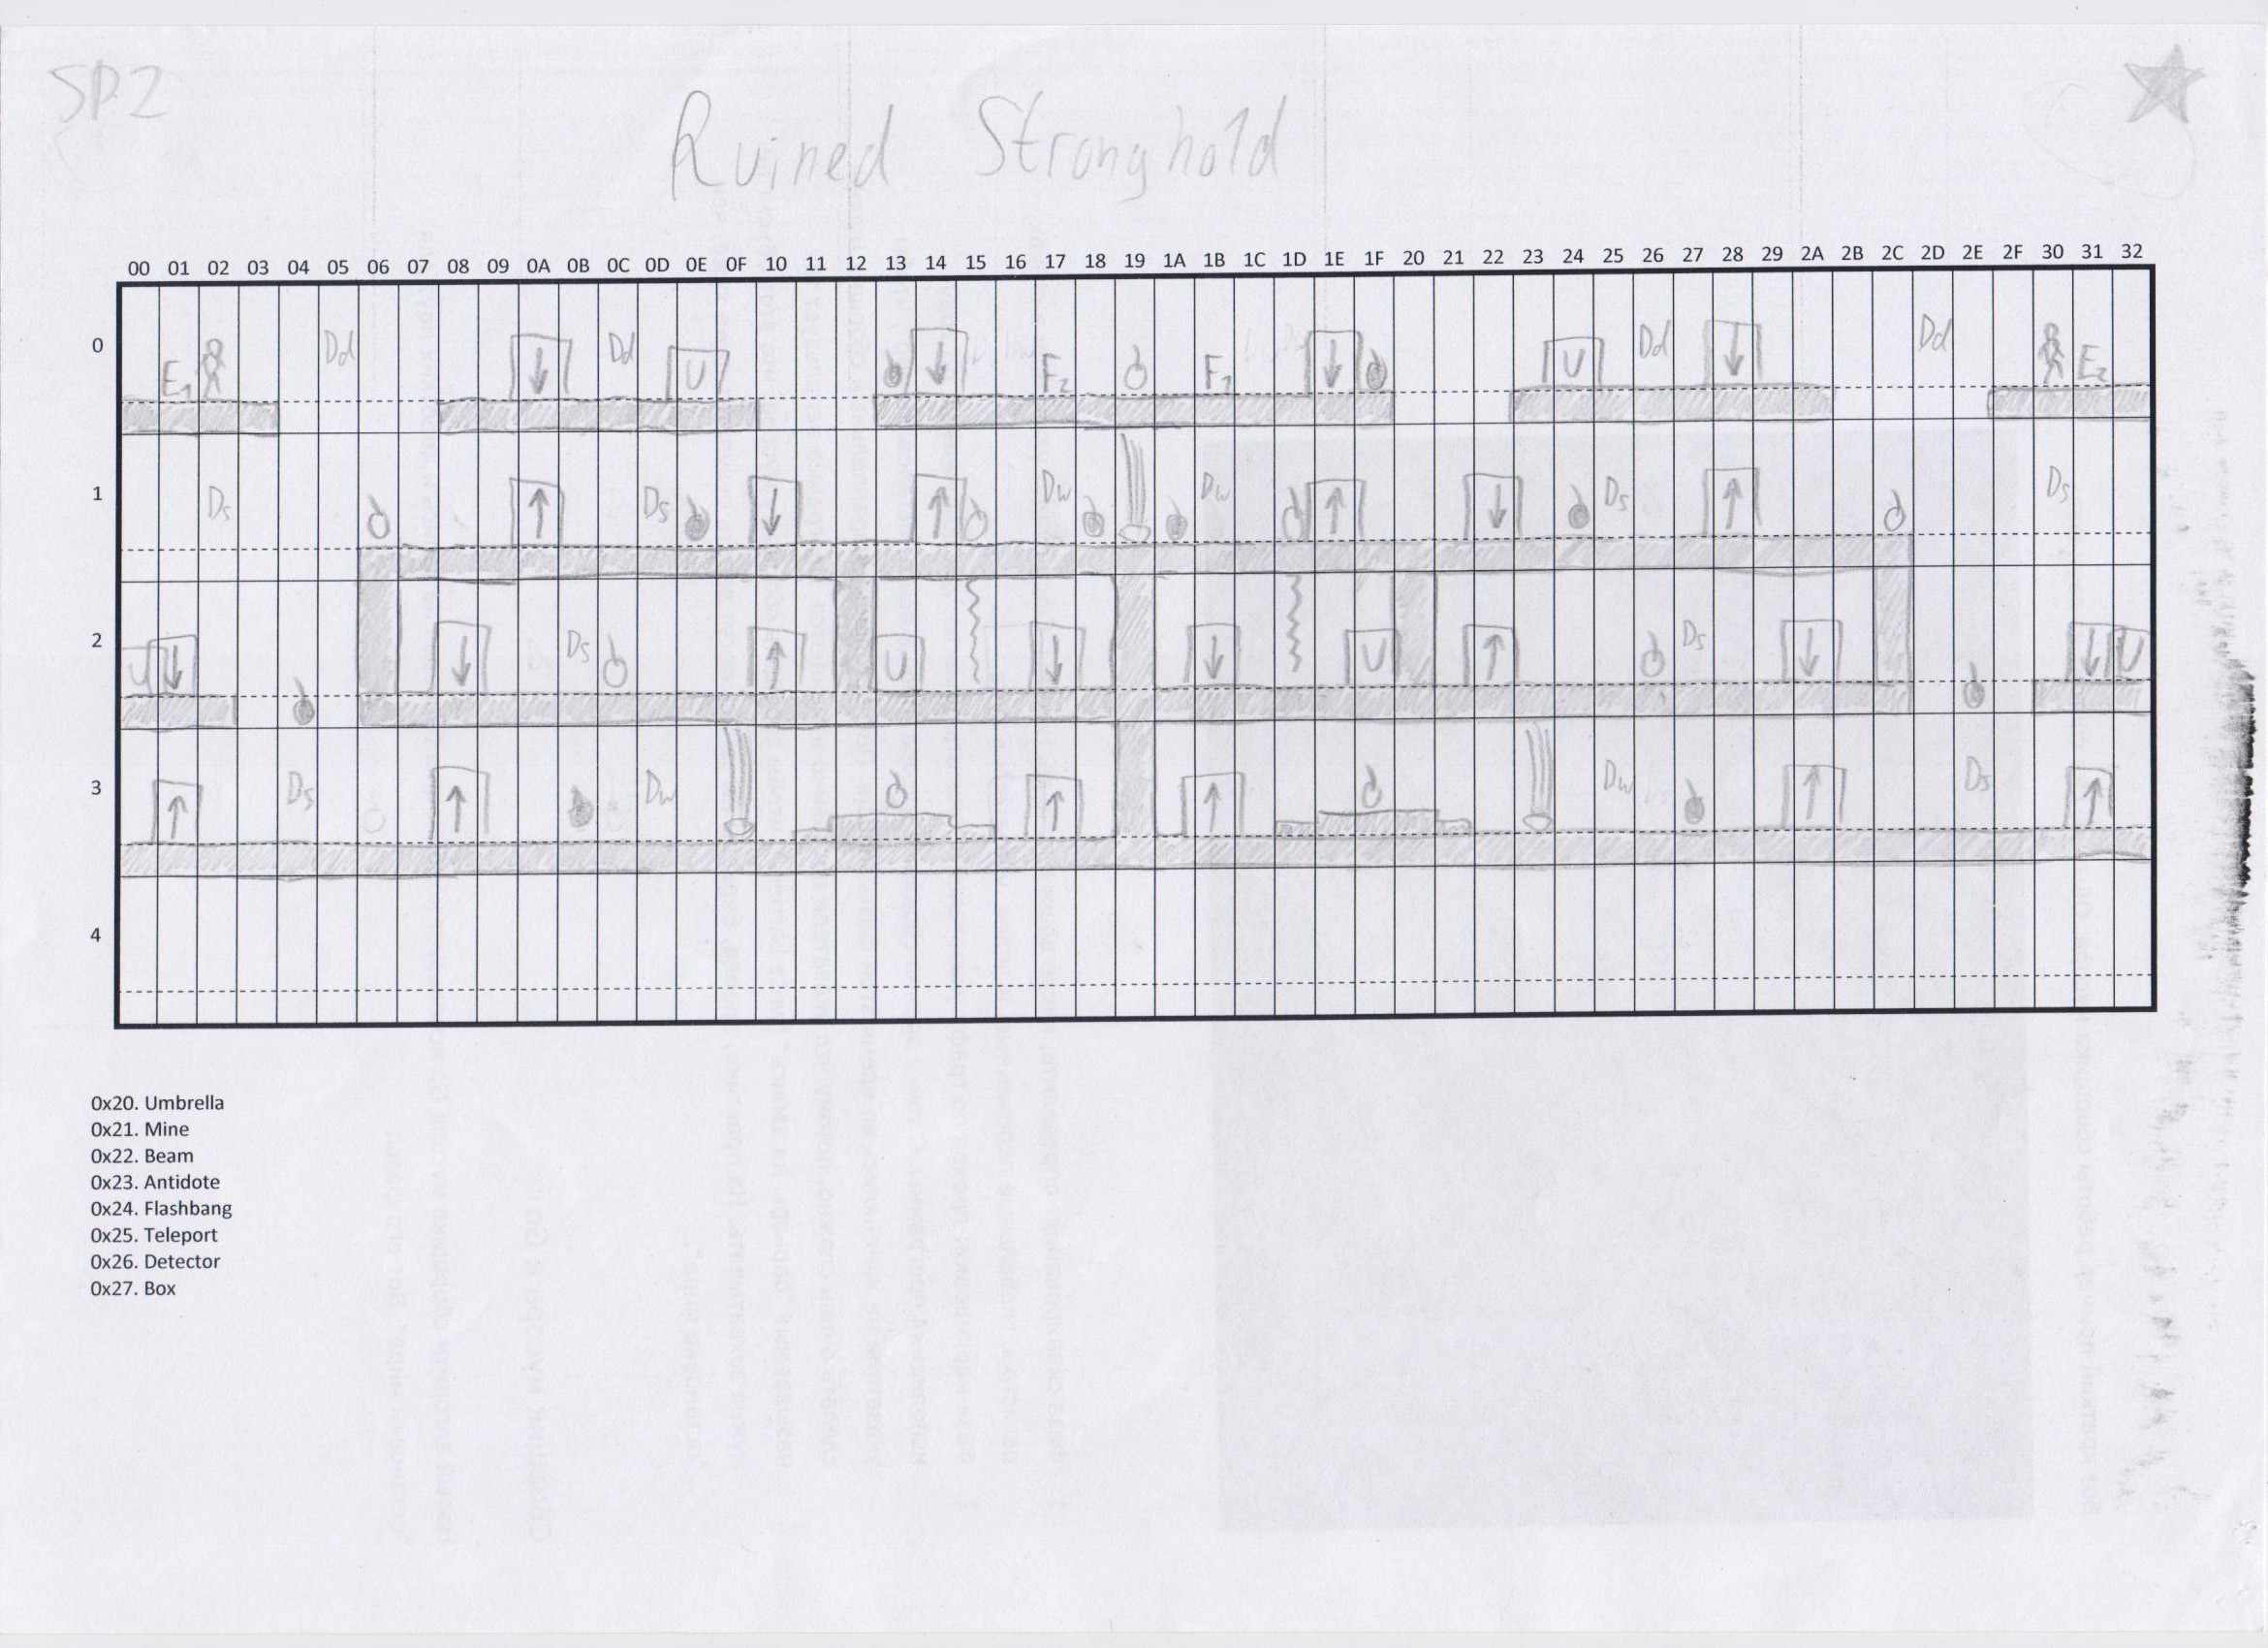 SP2
Ruined Stronghold
00 01 02 03 04 05 06 07 08 09 0A 0B 0C 0D 0E 0F 10 11 12 13 14 15 16 17 18 19 1A 1B 1C 1D 1E 1F 20 21 22 23 24 25 26 27 28 29 2A 2B 2C 2D 2E 2F 30 31 32
0 E1 Dd Dd U F2 F1 U Dd Dd E2
1 Ds Ds Dw Dw Ds Ds
2 U Ds U U Ds U
3 Ds Dw Dw Ds
4
0x20. Umbrella
0x21. Mine
0x22. Beam
0x23. Antidote
0x24. Flashbang
0x25. Teleport
0x26. Detector
0x27. Box